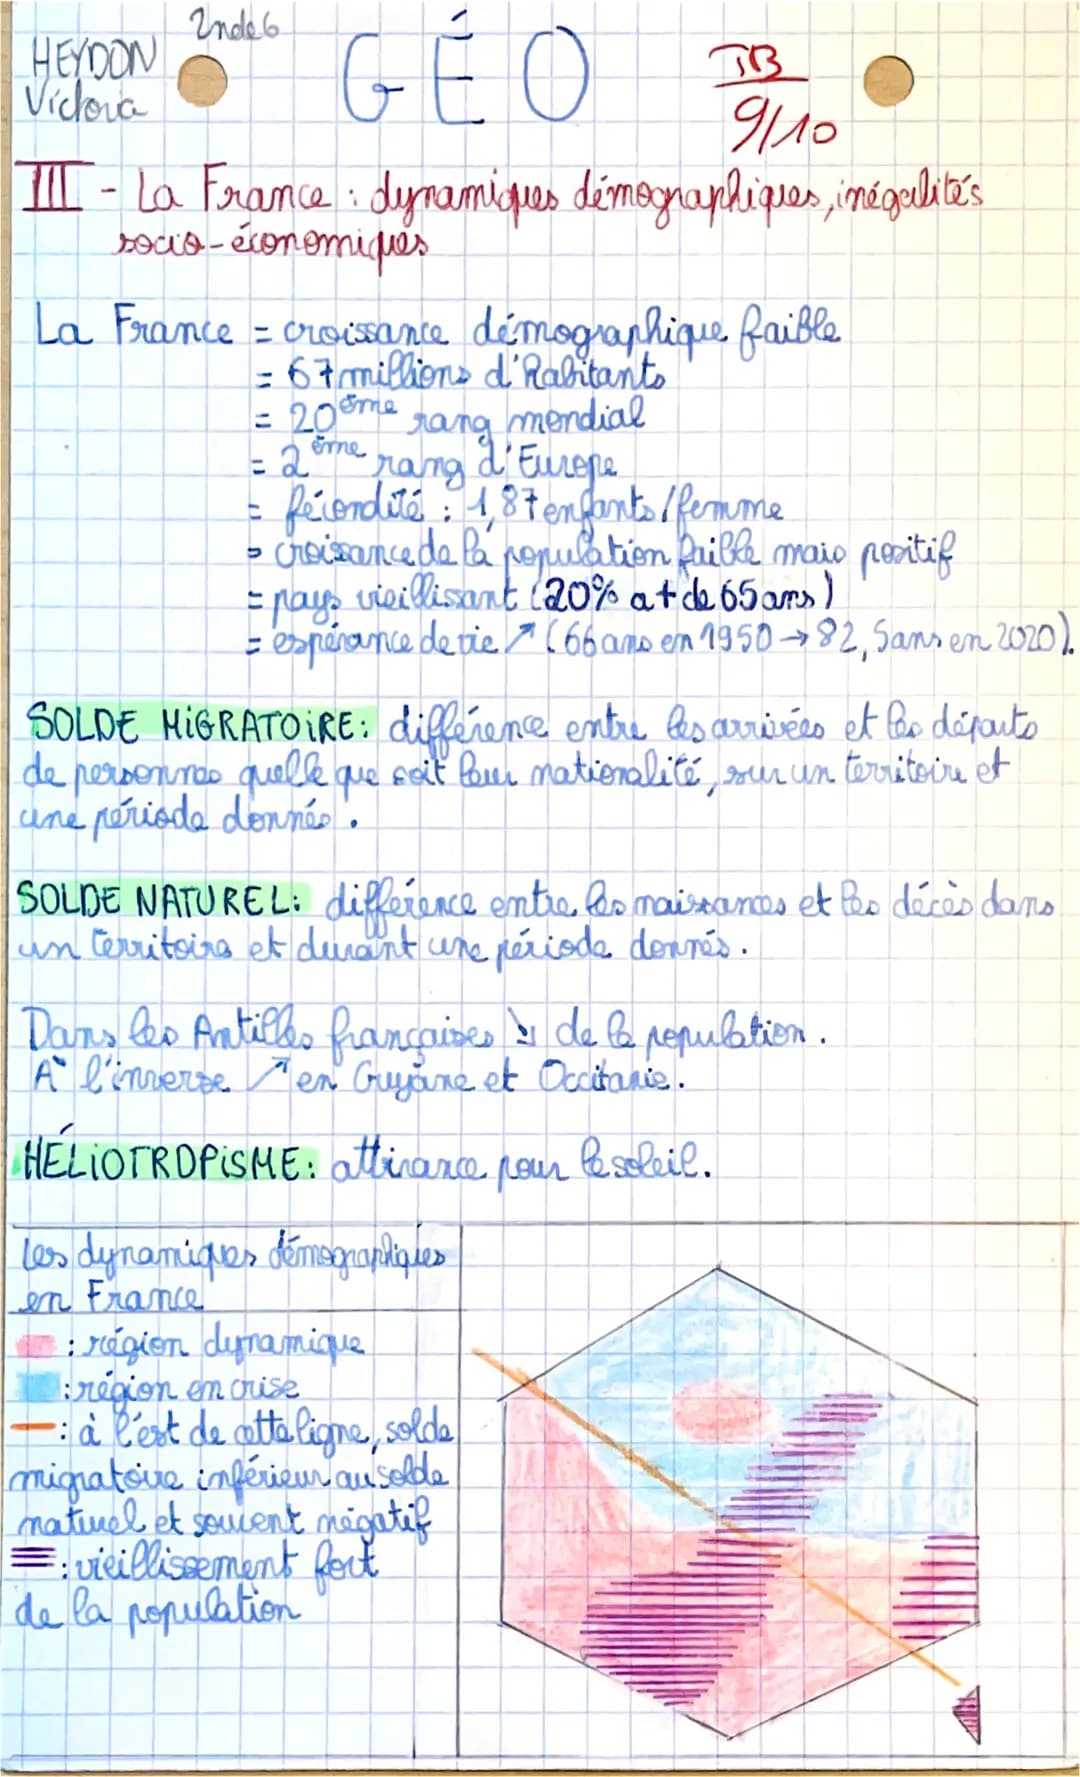 2nde6
HEYDON
Victoria
GÉO
TB
9/10
III - La France : dynamiques démographiques, inégalités
socio-économiques
La France = croissance démographique faible
= 67 millions d'habitants
= 20ème rang mondial
= 2ème rang d'Europe
= fécondité : 1,87 enfants/femme
= croissance de la population faible mais positif
= pays vieillissant (20% a + de 65 ans)
= espérance de vie ↗ (66 ans en 1950 → 82,5 ans en 2020).
SOLDE MIGRATOIRE: différence entre les arrivées et les départs
de personnes quelle que soit leur nationalité, sur un territoire et
une période donnés.
SOLDE NATUREL: différence entre les naissances et les décès dans
un territoire et durant une période donnés.
Dans les Antilles françaises ↘ de la population.
À l'inverse ↗ en Guyane et Occitanie.
HÉLIOTROPISME: attirance pour le soleil.
Les dynamiques démographiques
en France
: région dynamique
: région en crise
: à l'est de cette ligne, solde
migratoire inférieur au solde
naturel et souvent négatif
: vieillissement fort
de la population